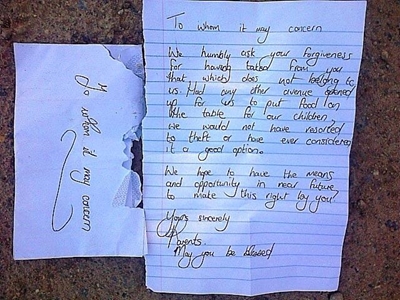 To whom it may concern
We humbly ask your forgiveness
for having taken from you
that which does not belong to
us. Had any other avenue opened
up for us to put food on
the table for our children,
we would not have resorted
to theft or have ever considered
it a good option.
We hope to have the means
and opportunity in near future
to make this right by you.
Yours sincerely
Parents.
May you be blessed
To whom it may concern